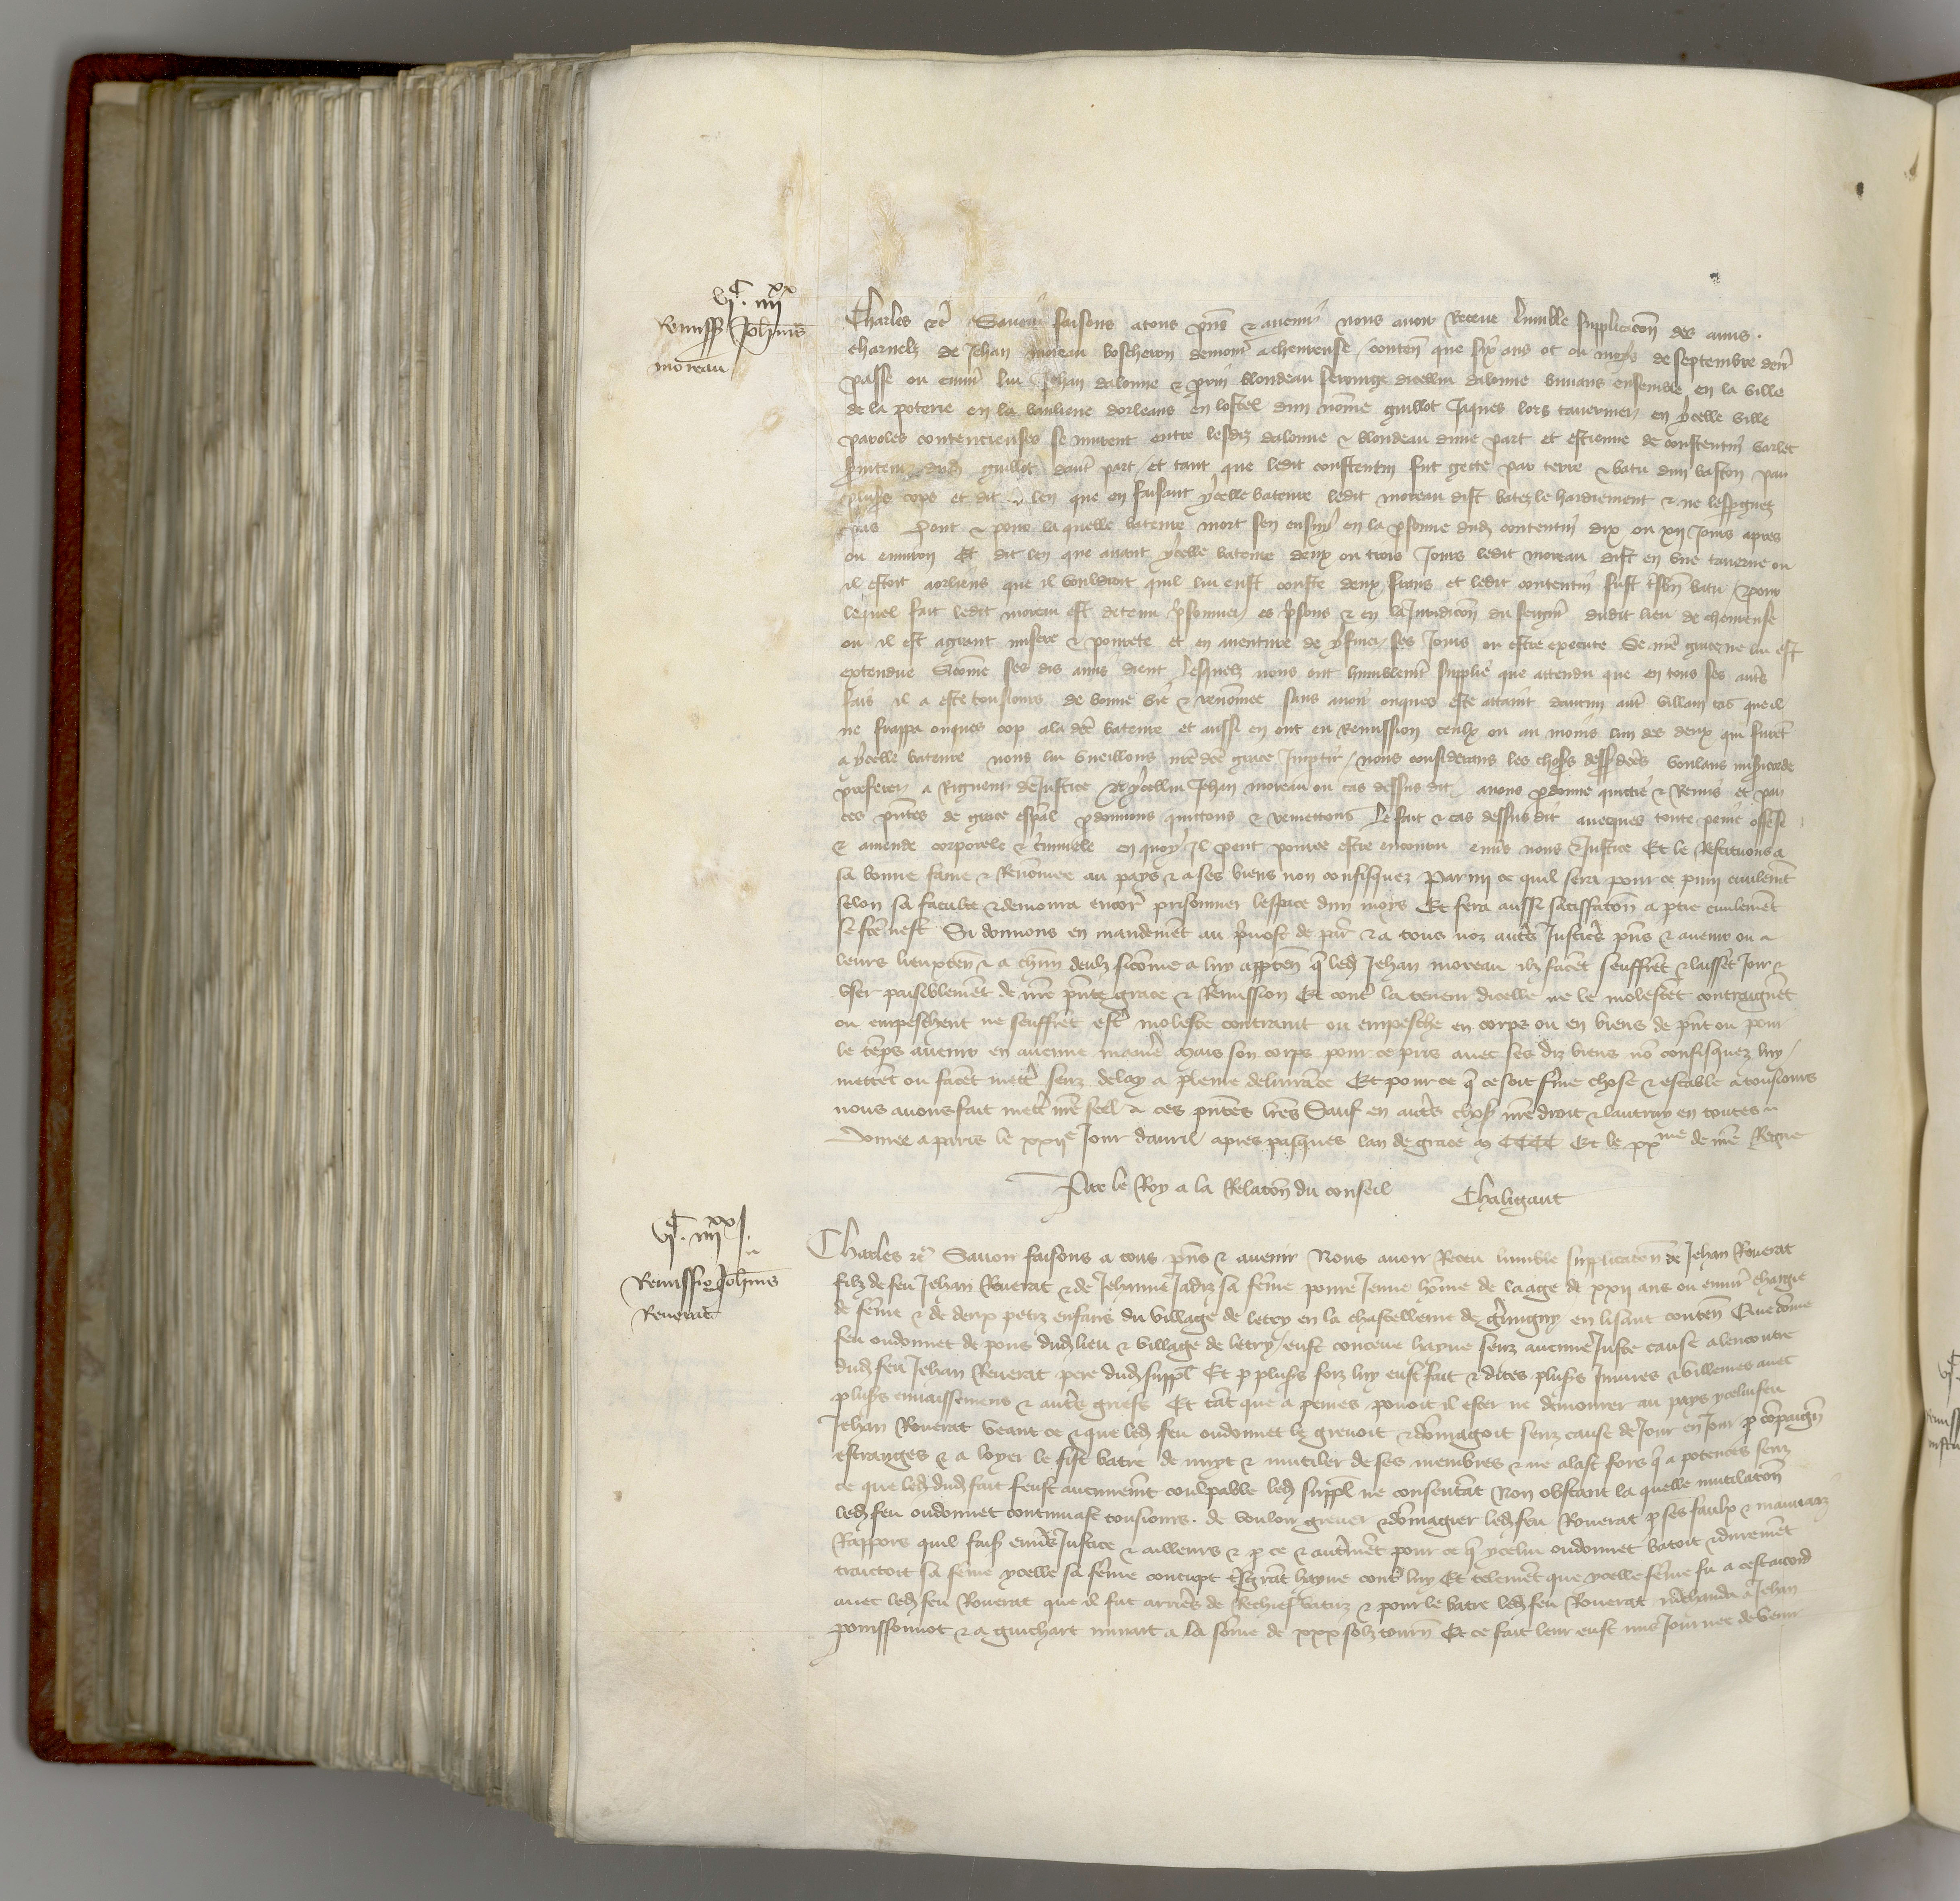 vjᶜ. iiijˣˣ
Remissio Johannis
moreau
Charles etc. Savoir faisons a tous pñs & avenir nous avoir Receue lumble supplicacõn des amis
charnelz de Jehan moreau boscheron demour̃ a chemeuse / conten̄ que six ans ot ou moys de septembre den̄r
passe ou environ lui Jehan dalonne & perrin blondeau serourge dicellui dalonne buvans ensemble en la ville
de la poterie en la banliene dorleans en lostel dun nõme guillot Jaques lors tavernier en ycelle ville
paroles contencieuses se murent entre lesdiz dalonne & blondeau dune part et estienne de constentin varlet
dud guillot dautr̃ part / et tant que ledit constentin fut gecte par terre & batu dun baston par
plus̃s cops et dit len que en faisant ycelle bateure ledit moreau dist batez le hardiement & ne lespergnez
pas Dont & pour la quelle bateure mort sen ensuy en la p̱sonne dud contentin dix ou xij Jours apres
ou environ Et dit len que avant ycelle bateure deux ou trois Jours ledit moreau dist en une taverne ou
il estoit a orliens que il vouldroit quil lui eust couste deux frans et ledit contentin fust tr̃sbñ batu / & pour
lequel fait ledit moreau est detenu p̱sonnier es p̱sons & en la Juridicõn du seign̄r dudit lieu de chemeuse
ou il est a grant misere & povrete et en aventure de y finer ses Jours ou estre execute Se nr̃e grace ne lui est
extendue Sicõme ses dis amis dient Lesquelx nous ont humblemẽt supplie que attendu que en tous ses autr̃s
fais il a este tousjours de bonne vie & renõmee sans avoir onques este attaint daucun autr̃ villain cas que il
ne frappa onques cop a la dce bateure et aussi en ont eu remission ceulx ou au moins lun des deux qui furẽt
a ycelle bateure nous lui vueillons nr̃e dce grace Impartir / nous considerans les choses dessus dces voulans misericorde
preferer a Rigueur de Justice et ycellui Jehan moreau ou cas dessus dit avons p̱donne quictie & Remis et par
ces pñtes de grace esp̱al p̱donnons quictons & remettons Le fait & cas dessus dit avecques toute peine offense
& amende corporele & criminele en quoy Il peut pource estre encouru env̱s nous & Justice Et le Restituons a
sa bonne fame & Renõmee au pays & a ses biens non confisquez Parmi ce quil sera pour ce puni civilemẽt
selon sa faculte & demorra encor̃ prisonnier lespace dun moys Et fera aussi satisfacõn a p̱tie civilemẽt
se fc̃e nest Si donnons en mandemẽt au p̱vost de paris & a tous noz autr̃s Justic̃rs pñs & avenir ou a
leurs lieuxten̄ & a chũn deulx sicõme a luy app̱ten̄ q̃ led Jehan moreau ilz facẽt seuffrẽt & laissẽt Joir &
user paisiblemẽt de nr̃e pñte grace & Remission Et contr̃ la teneur dicelle ne le molestẽt contraignẽt
ou empeschent ne seuffrẽt estr̃ moleste contraint ou empesche en corps ou en biens de pñt ou pour
le tẽps avenir en aucune maniẽre Mais son corps pour ce pris avec ses diz biens nõ confisquez luy
mettẽt ou facẽt mettr̃ senz delay a pleine delivrãce Et pour ce q̃ ce soit ferme chose & estable a tousjours
nous avons fait mettr̃ nr̃e seel a ces pñtes lr̃es Sauf en autr̃s choses nr̃e droit & lautruy en toutes
Donne a paris le xxijᵉ Jour davril apres pasques lan de grace m CCCC Et le xxᵐᵉ de nr̃e Regne
Par le Roy a la Relacõn du conseil Chaligaut
vjᶜ. iiijˣˣ j.
Remissio Johannis
Rouerat
Charles etc. Savoir faisons a tous pñs & avenir Nous avoir Receu lumble supplicacõn de Jehan Rouerat
filz de feu Jehan Rouerat & de Jehanne Jadiz sa fẽme povre Jeune hõme de laage de xxij ans ou environ chargie
de fẽme & de deux petiz enfans du village de letry en la chastellenie de grinigny en lisant conten̄ Que cõme
feu oudonnet de pons dud lieu & village de letry / eust conceue hayne senz aucune Juste cause alencontre
dud feu Jehan Rouerat pere dud suppl̃ Et p̱ plus̃s foiz luy eust fait & dites plus̃s Injures & villenies avec
plus̃s envaissemens & autr̃s griefs Et tãt que a peines povoit il ester ne demourer au pays ycelui feu
Jehan Rouerat veant ce & que led feu oudonnet le grevoit & dõmagoit senz cause de Jour en Jour p̱ cõpaigñ
estranges & a loyer le fist batre de nuyt & mutiler de ses membres & ne alast fors q̃ a potences senz
ce que led dud fait feust aucunemẽt coulpable led suppl̃ ne consentãt Non obstant la quelle mutilacõn
led feu oudonnet continuast tousjours de vouloir grever & dõmagier led feu Rouerat p̱ ses faulx & mauvaiz
Rappors quil faisoit env̱s Justice & ailleurs & p̱ ce & autremẽt pour ce q̃ ycelui oudonnet batoit & duremẽt
traictoit sa fẽme ycelle sa fẽme concupt tr̃sgrãt hayne contr̃ luy Et telemẽt que ycelle fẽme fu a cest acord
avec led feu Rouerat que il fut arriẽrs de Rechief batuz & pour le batre led feu Rouerat marchanda a Jehan
poinssonnot & a guichart mirart a la sõme de xxx solz tourñ Et ce fait leur eust mis Journee de venir